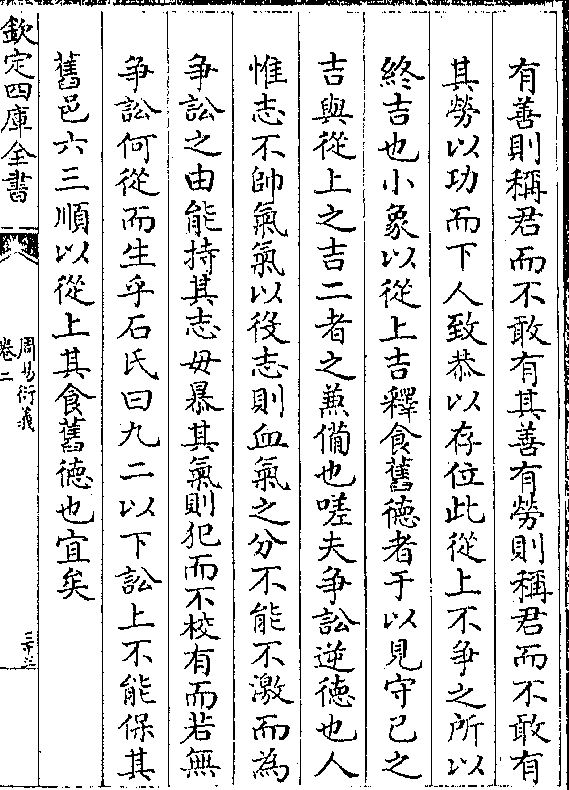 有善則稱君而不敢有其善有勞則稱君而不敢有
其勞以功而下人致恭以存位此從上不爭之所以
終吉也小象以從上吉釋食舊徳者于以見守已之
吉與從上之吉二者之兼備也嗟夫爭訟逆徳也人
惟志不帥氣氣以役志則血氣之分不能不激而為
爭訟之由能持其志毋暴其氣則犯而不校有而若無
爭訟何從而生乎石氏曰九二以下訟上不能保其
舊邑六三順以從上其食舊徳也宜矣
欽定四庫全書
周易衍義
卷二